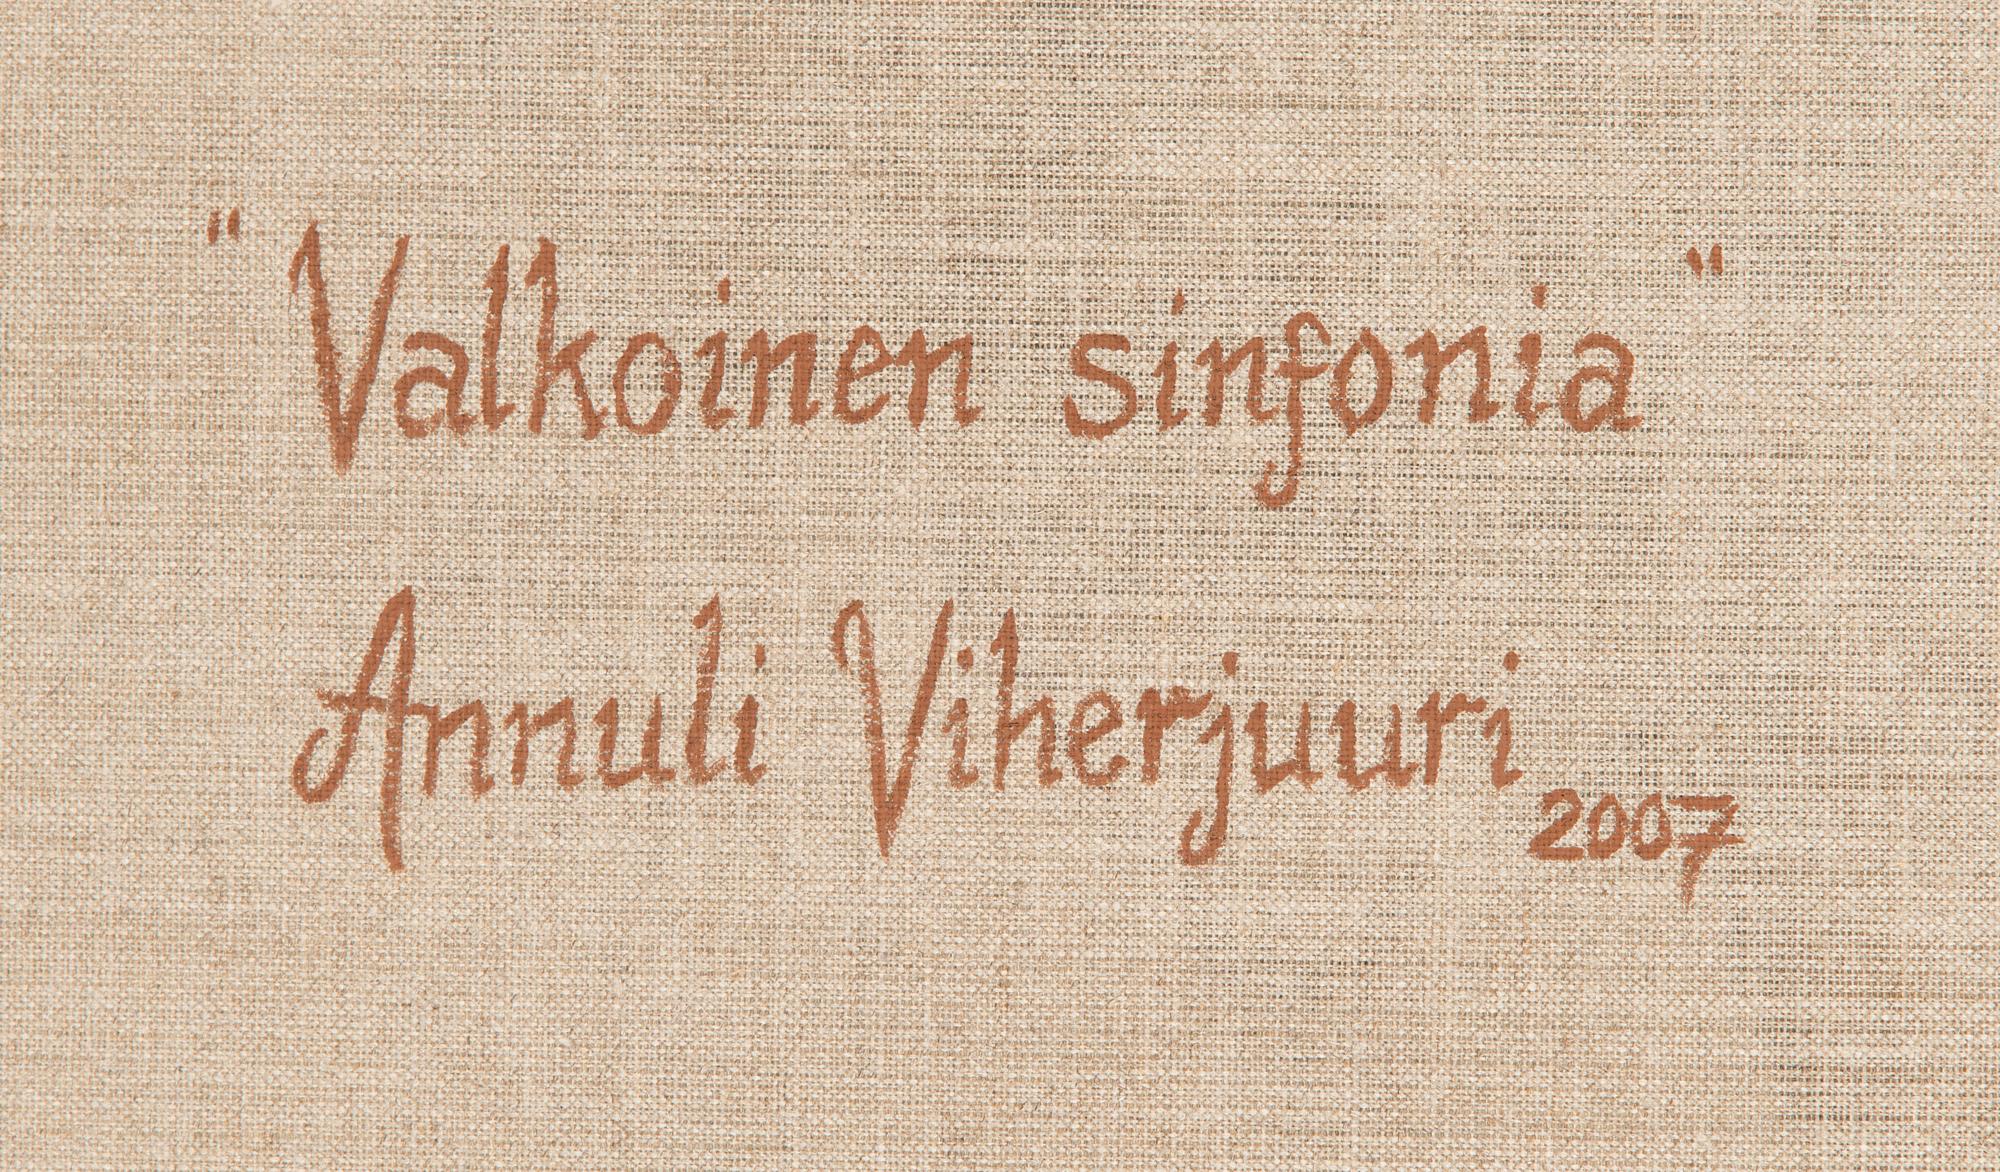 "Valkoinen sinfonia"
Annuli Viherjuuri 2007